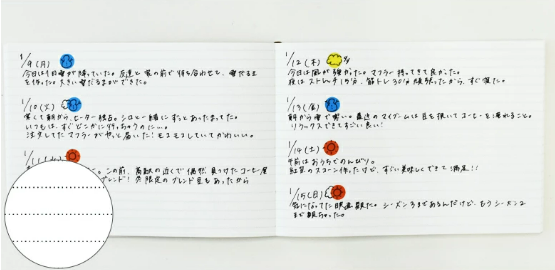 1/9(月)
今日は1日雪が降っていた。友達と家の前で待ち合わせし、雪だるま
を作った。大きい雪だるまができた。
1/10(火)
寒くて朝から、ヒーター独占。シロと一緒にずっとあたまってた。
いつもは、すぐどこかに行っちゃうのに…。
注文してたマフラーがやっと届いた!モコモコしていてかわいい。
1/11(火)
の前、
の近くで偶然見つけたコーヒー屋
ブレンド!
限定のブレンド豆もあったから
1/12(木)
今日は風が強かった。マフラー持ってきて良かった。
夜はストレッチ15分、筋トレ30分頑張ったから、すぐ寝た。
1/13(金)
朝から雪で寒い。最近のマイブームは豆を挽いてコーヒーを淹れること。
リラックスできてすごい良い!
1/14(土)
午前はおうちでのんびり。
紅茶のスコーン作ったけど、すごい美味しくできて満足!!
1/15(日)
気になってた映画観た。シーズン3まであるんだけど、もうシーズン2
まで観ちゃった。